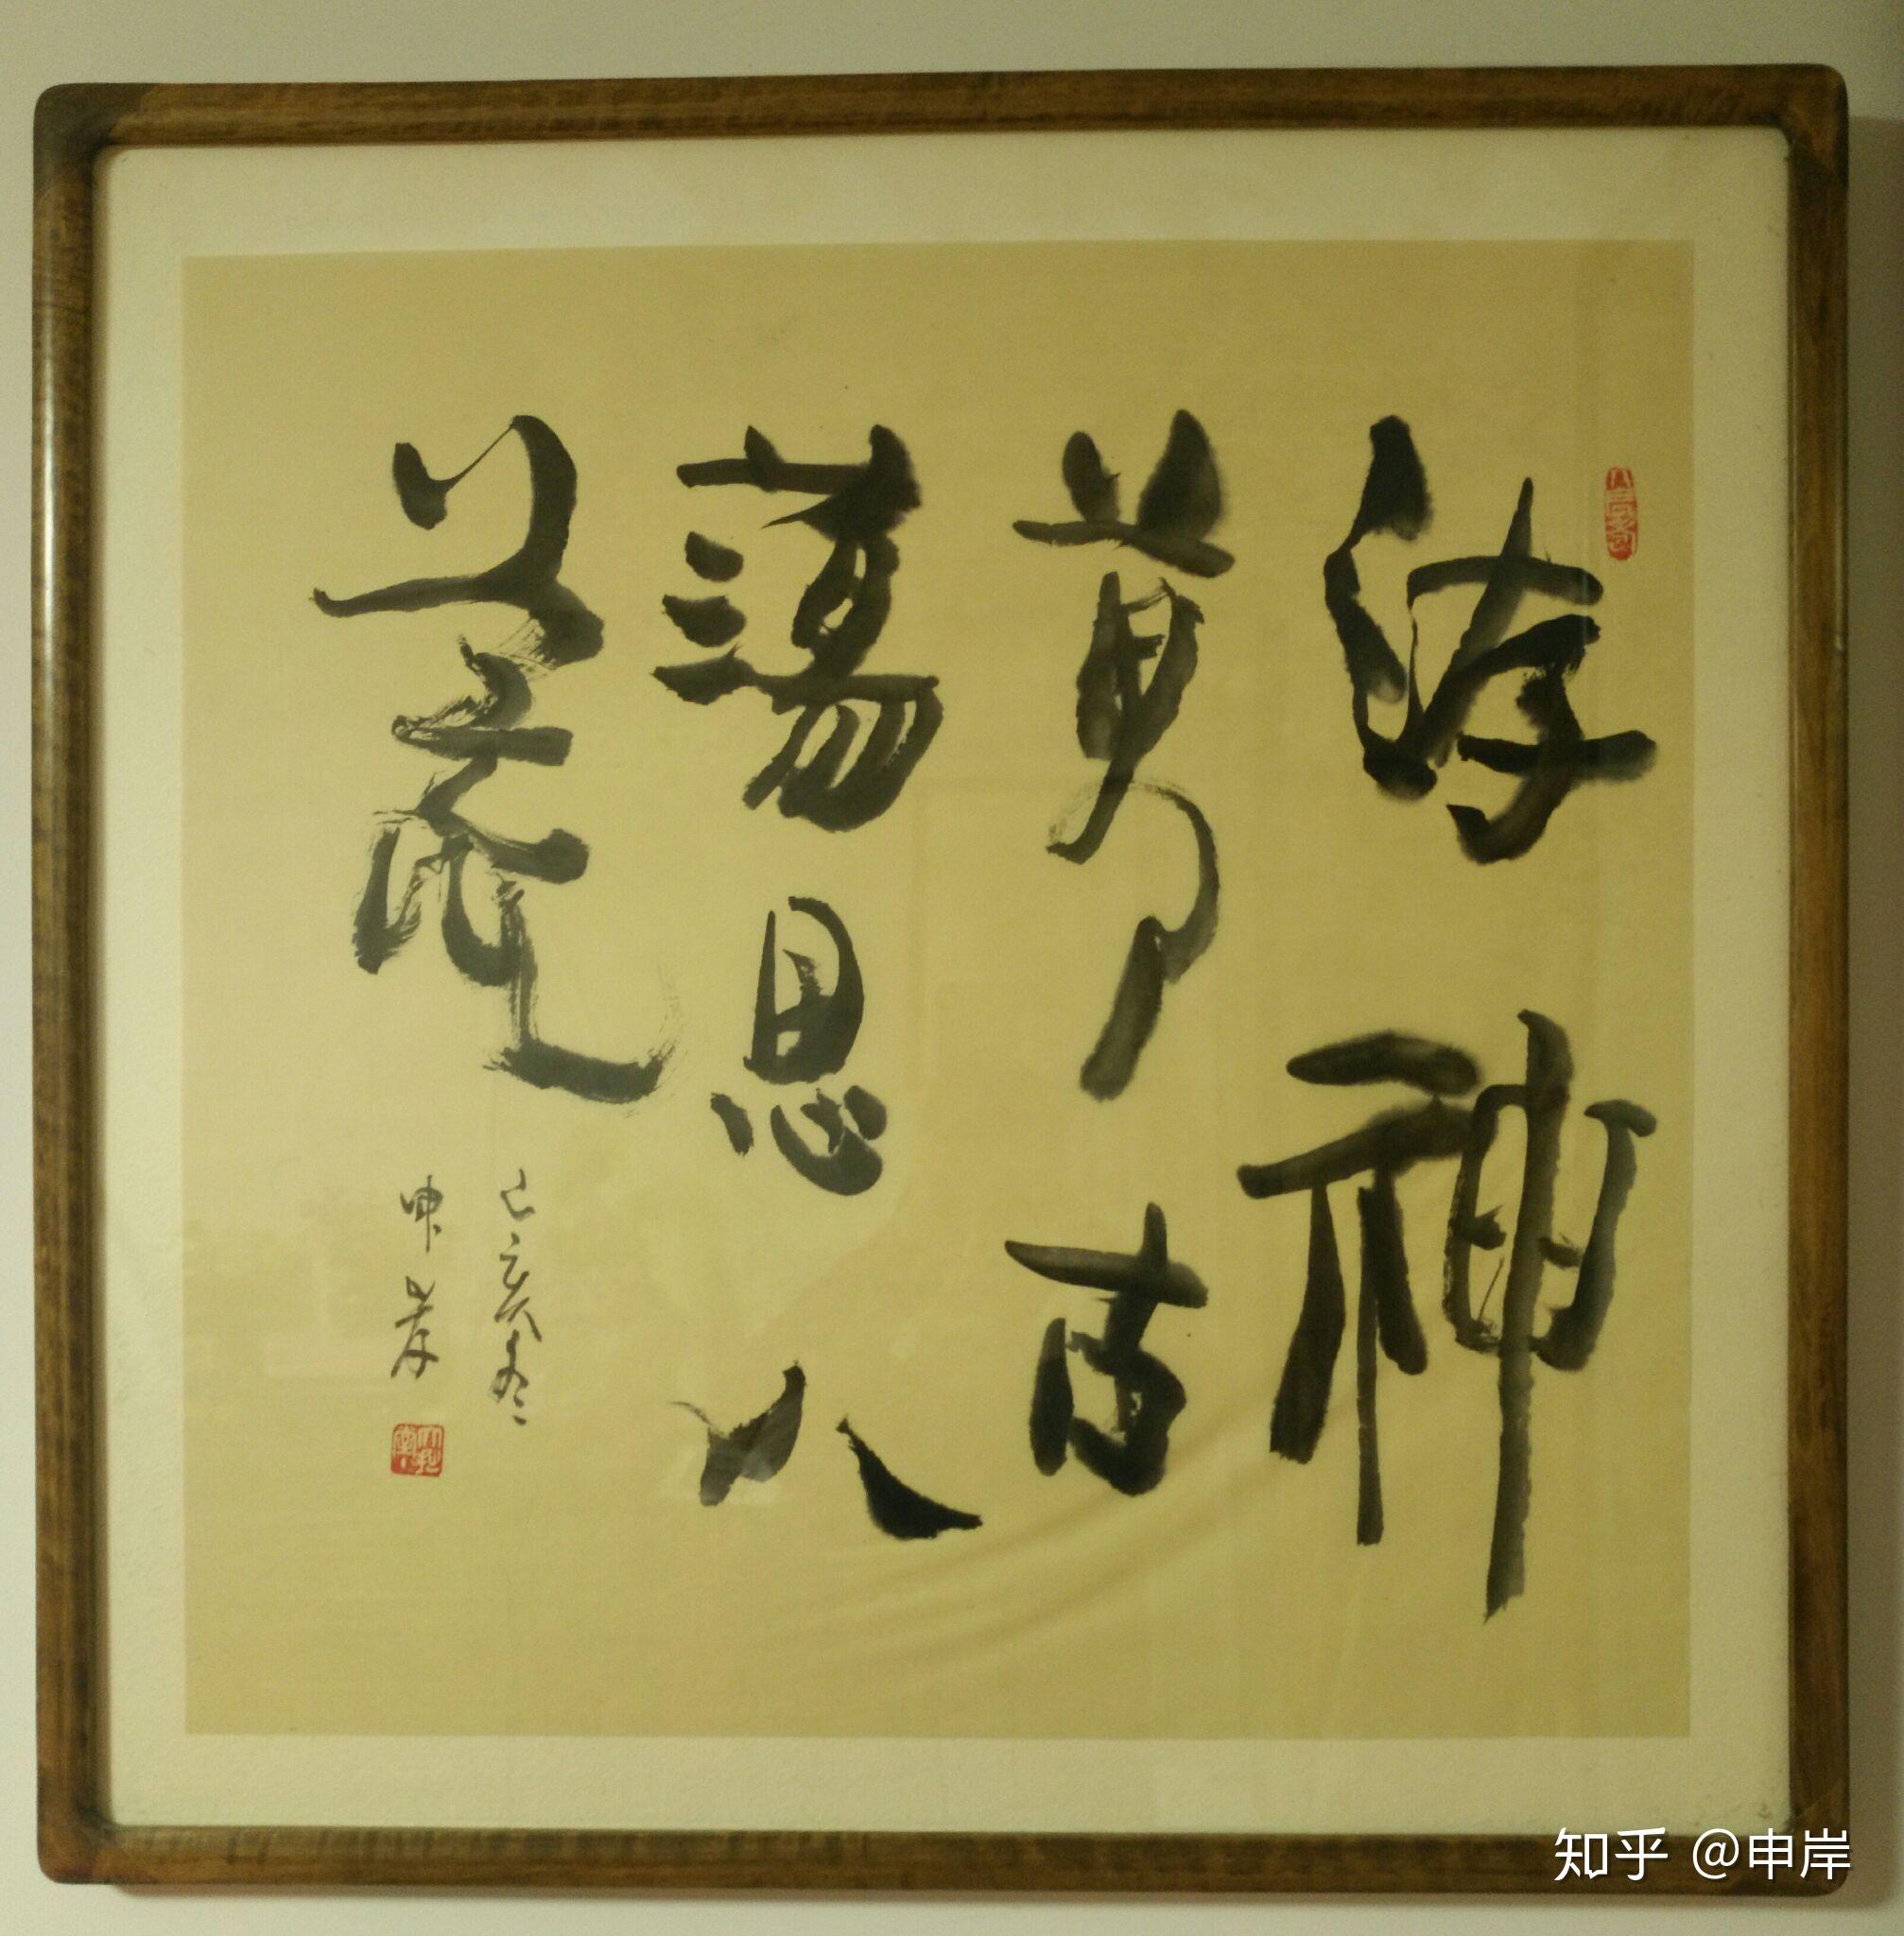 游神
萬古
蕩思八
荒
己亥冬
申岸
知乎 @申岸